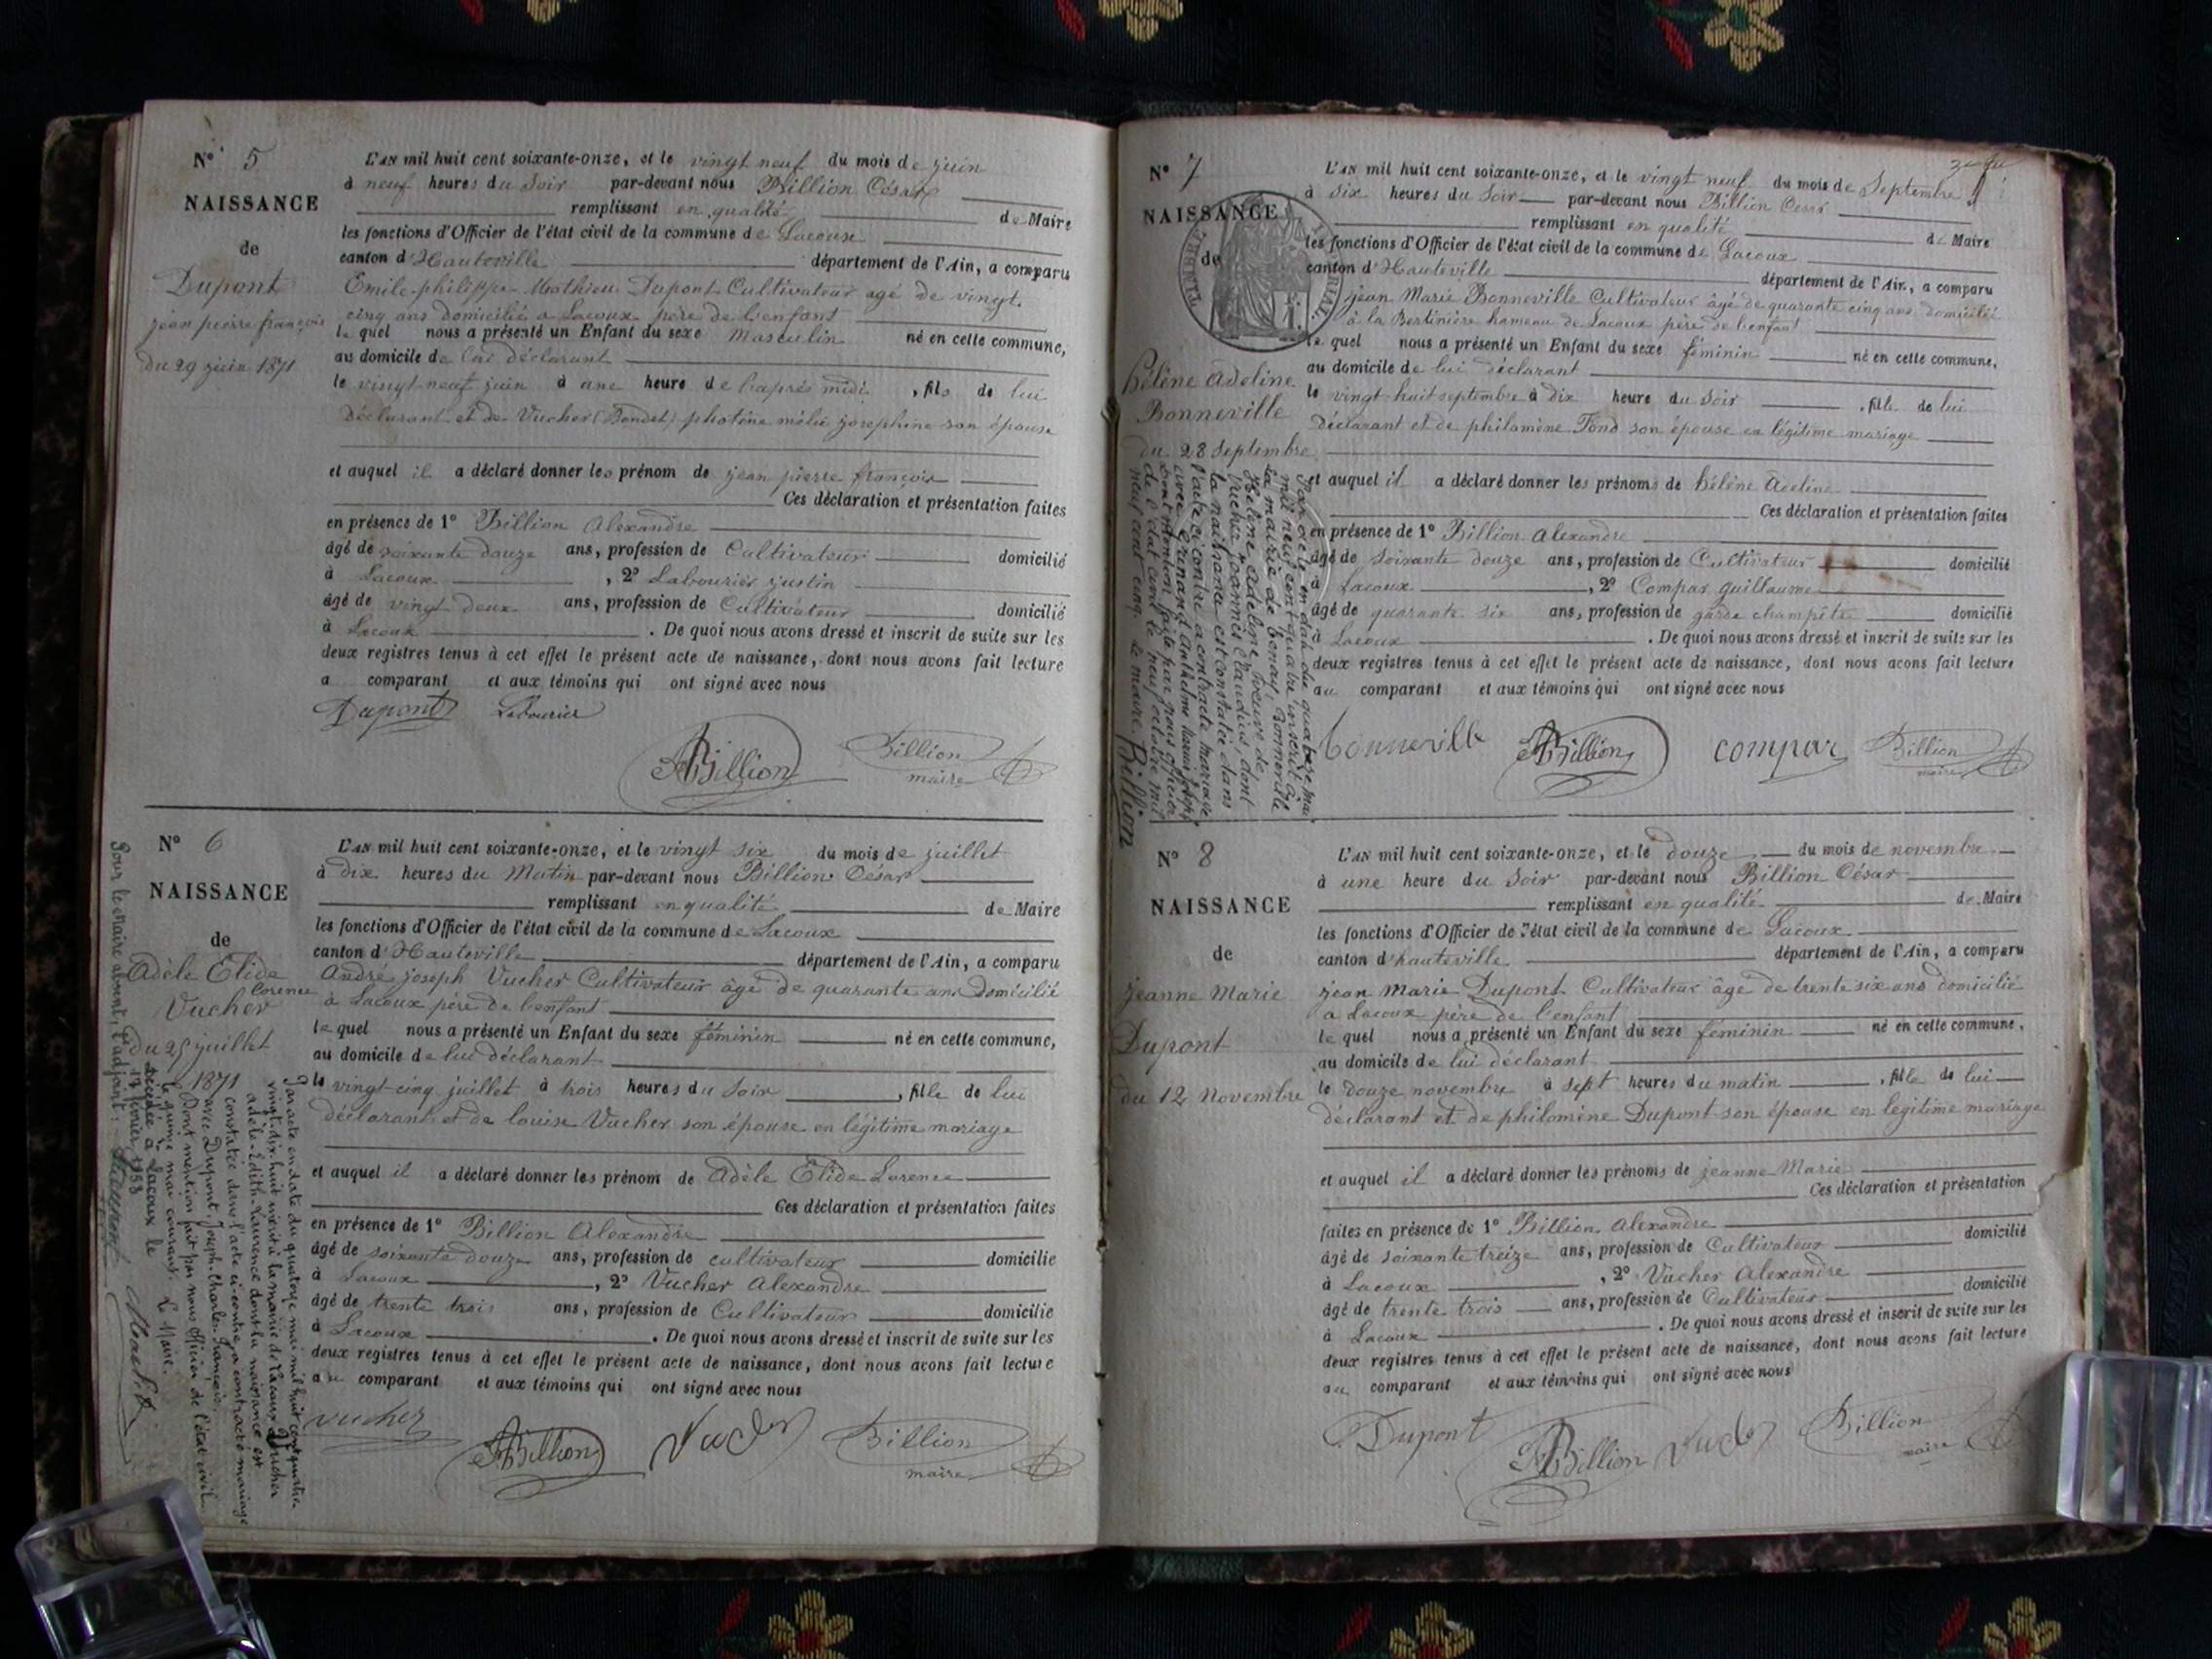 N° 5
NAISSANCE
de
Dupont
jean pierre françois
du 29 juin 1871
L'AN mil huit cent soixante-onze, et le vingt neuf du mois de juin
à neuf heures du Soir par-devant nous Billion César
remplissant en qualité de Maire
les fonctions d'Officier de l'état civil de la commune de Lacoux
canton d'Hauteville département de l'Ain, a comparu
Emile philippe Mathieu Dupont Cultivateur agé de vingt
cinq ans domicilié a Lacoux père de l'enfant
lequel nous a présenté un Enfant du sexe Masculin né en cette commune,
au domicile de lui déclarant
le vingt neuf juin à une heure de l'après midi, fils de lui
Déclarant et de Vucher (Bondet) photine mélie josephine son épouse
et auquel il a déclaré donner les prénom de jean pierre françois
Ces déclaration et présentation faites
en présence de 1° Billion Alexandre
âgé de soixante douze ans, profession de Cultivateur domicilié
à Lacoux, 2° Labourier justin
âgé de vingt deux ans, profession de Cultivateur domicilié
à Lacoux. De quoi nous avons dressé et inscrit de suite sur les
deux registres tenus à cet effet le présent acte de naissance, dont nous avons fait lecture
a comparant et aux témoins qui ont signé avec nous
Dupont Labourier
ABillion Billion
maire
N° 6
NAISSANCE
de
Adèle Elide
Lorence
Vucher
du 25 juillet
1871
L'AN mil huit cent soixante-onze, et le vingt six du mois de juillet
à dix heures du Matin par-devant nous Billion César
remplissant en qualité de Maire
les fonctions d'Officier de l'état civil de la commune de Lacoux
canton d'Hauteville département de l'Ain, a comparu
André joseph Vucher Cultivateur âgé de quarante ans Domicilié
à Lacoux père de l'enfant
lequel nous a présenté un Enfant du sexe féminin né en cette commune,
au domicile de lui déclarant
le vingt-cinq juillet à trois heures du Soir, fille de lui
déclarant et de louise Vucher son épouse en légitime mariage
et auquel il a déclaré donner les prénom de Adèle Elide Lorence
Ces déclaration et présentation faites
en présence de 1° Billion Alexandre
âgé de soixante douze ans, profession de cultivateur domicilié
à Lacoux, 2° Vucher Alexandre
âgé de trente trois ans, profession de Cultivateur domicilié
à Lacoux. De quoi nous avons dressé et inscrit de suite sur les
deux registres tenus à cet effet le présent acte de naissance, dont nous avons fait lecture
au comparant et aux témoins qui ont signé avec nous
vucher ABillion Vucher Billion
maire
Par acte en date du quatorze mai mil huit cent quatre-
vingt-dix-huit inscrit à la mairie de Lacoux Vucher
Adèle-Edith-Laurence dont la naissance est
constatée dans l'acte ci-contre a contracté mariage
avec Dupont Joseph-Charles-François.
Dont mention fait par nous Officier de l'état civil
le quinze mai courant. Le Maire.
Décédée à Lacoux le
17 février 1953
Pour le Maire absent, l'adjoint:
N° 7
NAISSANCE
de
TIMBRE IMPÉRIAL
Hélène Adeline
Bonneville
du 28 Septembre
L'AN mil huit cent soixante-onze, et le vingt neuf du mois de Septembre
à six heures du Soir par-devant nous Billion César
remplissant en qualité de Maire
les fonctions d'Officier de l'état civil de la commune de Lacoux
canton d'Hauteville département de l'Ain, a comparu
jean Marie Bonneville Cultivateur âgé de quarante cinq ans domicilié
à la Bertinière hameau de Lacoux père de l'enfant
lequel nous a présenté un Enfant du sexe féminin né en cette commune,
au domicile de lui déclarant
le vingt-huit septembre à dix heure du Soir, fille de lui
Déclarant et de philomène Fond son épouse en légitime mariage
et auquel il a déclaré donner les prénoms de hélène Adeline
Ces déclaration et présentation faites
en présence de 1° Billion Alexandre
âgé de soixante douze ans, profession de Cultivateur domicilié
à Lacoux, 2° Compar guillaume
âgé de quarante six ans, profession de garde champêtre domicilié
à Lacoux. De quoi nous avons dressé et inscrit de suite sur les
deux registres tenus à cet effet le présent acte de naissance, dont nous avons fait lecture
au comparant et aux témoins qui ont signé avec nous
bonneville ABillion compar Billion
maire
Par acte en date du quatorze mai
mil neuf cent quatre inscrit à
la mairie de Bonay, Bonneville
Hélène Adeline veuve de
Vucher Joannès Claudius, dont
la naissance est constatée dans
l'acte ci-contre a contracté mariage
avec
Dont mention faite par nous officier
de l'état civil le neuf octobre mil
neuf cent cinq. Le maire, Billion
N° 8
NAISSANCE
de
Jeanne Marie
Dupont
du 12 Novembre
L'AN mil huit cent soixante-onze, et le douze du mois de novembre
à une heure du Soir par-devant nous Billion César
remplissant en qualité de Maire
les fonctions d'Officier de l'état civil de la commune de Lacoux
canton d'hauteville département de l'Ain, a comparu
jean Marie Dupont Cultivateur âgé de trente six ans domicilié
a Lacoux père de l'enfant
lequel nous a présenté un Enfant du sexe féminin né en cette commune,
au domicile de lui déclarant
le douze novembre à sept heures du matin, fille de lui
déclarant et de philomène Dupont son épouse en légitime mariage
et auquel il a déclaré donner les prénoms de jeanne Marie
Ces déclaration et présentation
faites en présence de 1° Billion Alexandre domicilié
âgé de soixante treize ans, profession de Cultivateur
à Lacoux, 2° Vucher Alexandre
âgé de trente trois ans, profession de Cultivateur domicilié
à Lacoux. De quoi nous avons dressé et inscrit de suite sur les
deux registres tenus à cet effet le présent acte de naissance, dont nous avons fait lecture
au comparant et aux témoins qui ont signé avec nous
Dupont ABillion Vucher Billion
maire